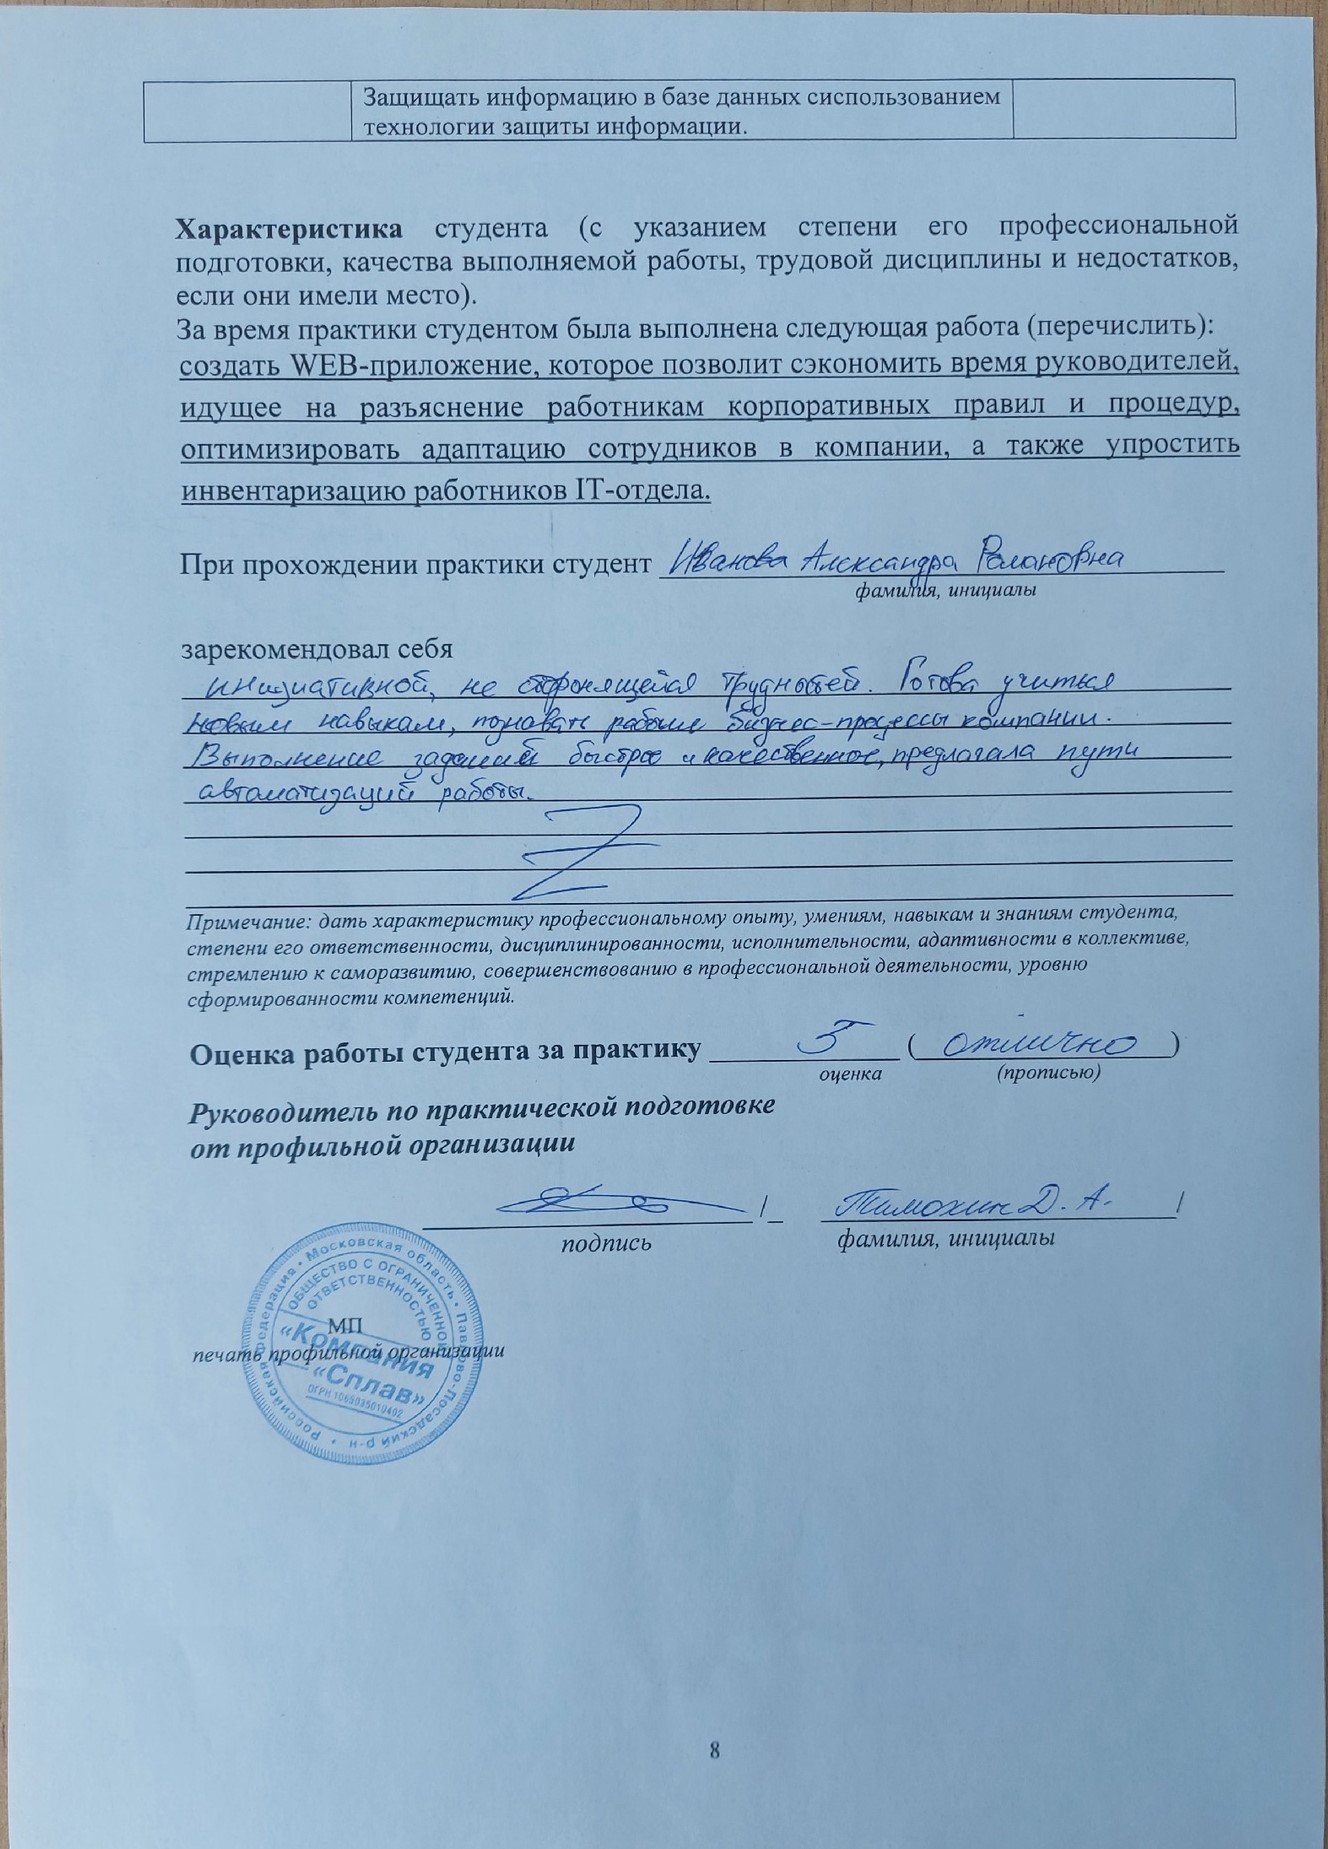 Защищать информацию в базе данных сиспользованием
технологии защиты информации.
Характеристика студента (с указанием степени его профессиональной
подготовки, качества выполняемой работы, трудовой дисциплины и недостатков,
если они имели место).
За время практики студентом была выполнена следующая работа (перечислить):
создать WEB-приложение, которое позволит сэкономить время руководителей,
идущее на разъяснение работникам корпоративных правил и процедур,
оптимизировать адаптацию сотрудников в компании, а также упростить
инвентаризацию работников IT-отдела.
При прохождении практики студент Иванова Александра Романовна
фамилия, инициалы
зарекомендовал себя
инициативной, не сторонящейся трудностей. Готова учиться
новым навыкам, познавать рабочие бизнес-процессы компании.
Выполнение заданий быстрое и качественное, предлагала пути
автоматизаций работы.
Примечание: дать характеристику профессиональному опыту, умениям, навыкам и знаниям студента,
степени его ответственности, дисциплинированности, исполнительности, адаптивности в коллективе,
стремлению к саморазвитию, совершенствованию в профессиональной деятельности, уровню
сформированности компетенций.
Оценка работы студента за практику 5 (отлично)
оценка (прописью)
Руководитель по практической подготовке
от профильной организации
/ Тимохин Д. А. /
подпись фамилия, инициалы
МП
печать профильной организации
Российская Федерация • Московская область • Павлово-Посадский р-н •
ОБЩЕСТВО С ОГРАНИЧЕННОЙ
ОТВЕТСТВЕННОСТЬЮ
«Компания
«Сплав»
ОГРН 1065035010492
8